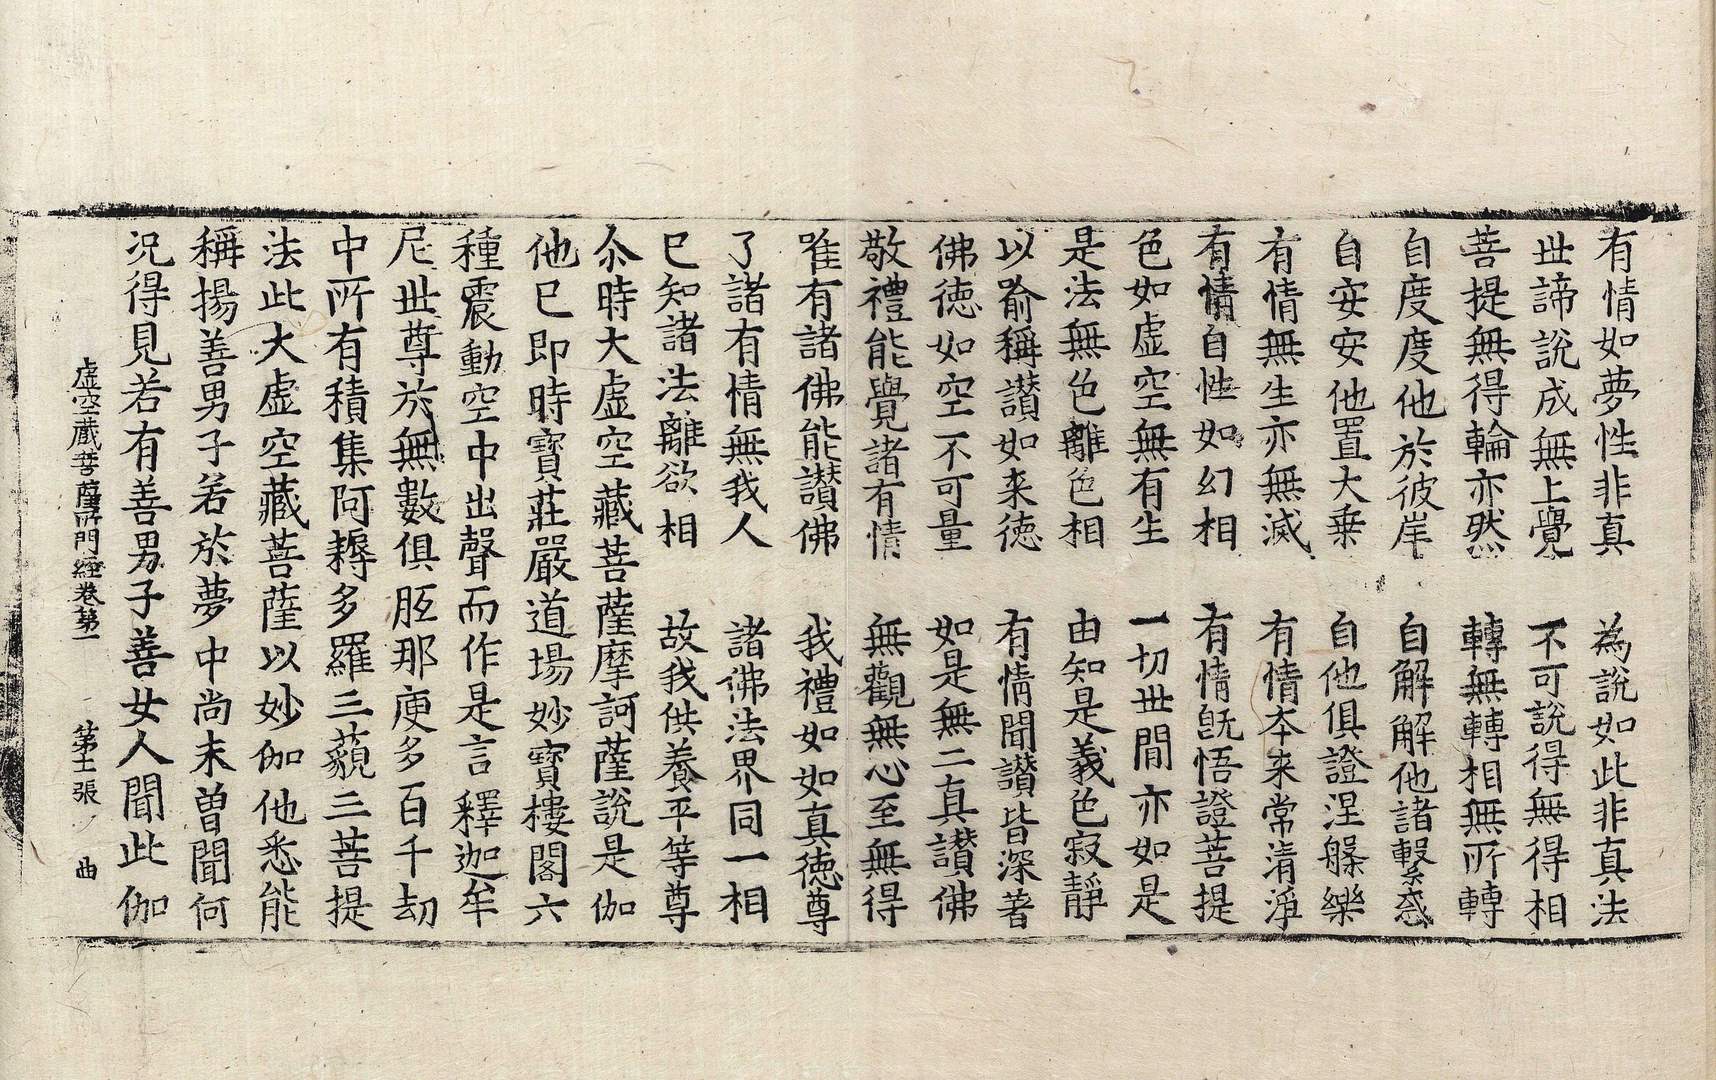 有情如夢性非真　為說如此非真法
世諦說成無上覺　不可說得無得相
菩提無得輪亦然　轉無轉相無所轉
自度度他於彼岸　自解解他諸繫惑
自安安他置大乗　自他俱證涅槃樂
有情無生亦無滅　有情本来常清淨
有情自性如幻相　有情旣悟證菩提
色如虛空無有生　一切世間亦如是
是法無色離色相　由知是義色寂靜
以喻稱讃如来徳　有情聞讃皆深著
佛徳如空不可量　如是無二真讃佛
敬禮能覺諸有情　無觀無心至無得
唯有諸佛能讃佛　我禮如如真徳尊
了諸有情無我人　諸佛法界同一相
已知諸法離欲相　故我供養平等尊
尒時大虛空藏菩薩摩訶薩說是伽
他已即時寶莊嚴道場妙寶樓閣六
種震動空中出聲而作是言釋迦牟
尼世尊於無數俱胝那庾多百千劫
中所有積集阿耨多羅三藐三菩提
法此大虛空藏菩薩以妙伽他悉能
稱揚善男子若於夢中尚未曽聞何
況得見若有善男子善女人聞此伽
虛空藏菩薩所門經卷第一　第十張　曲